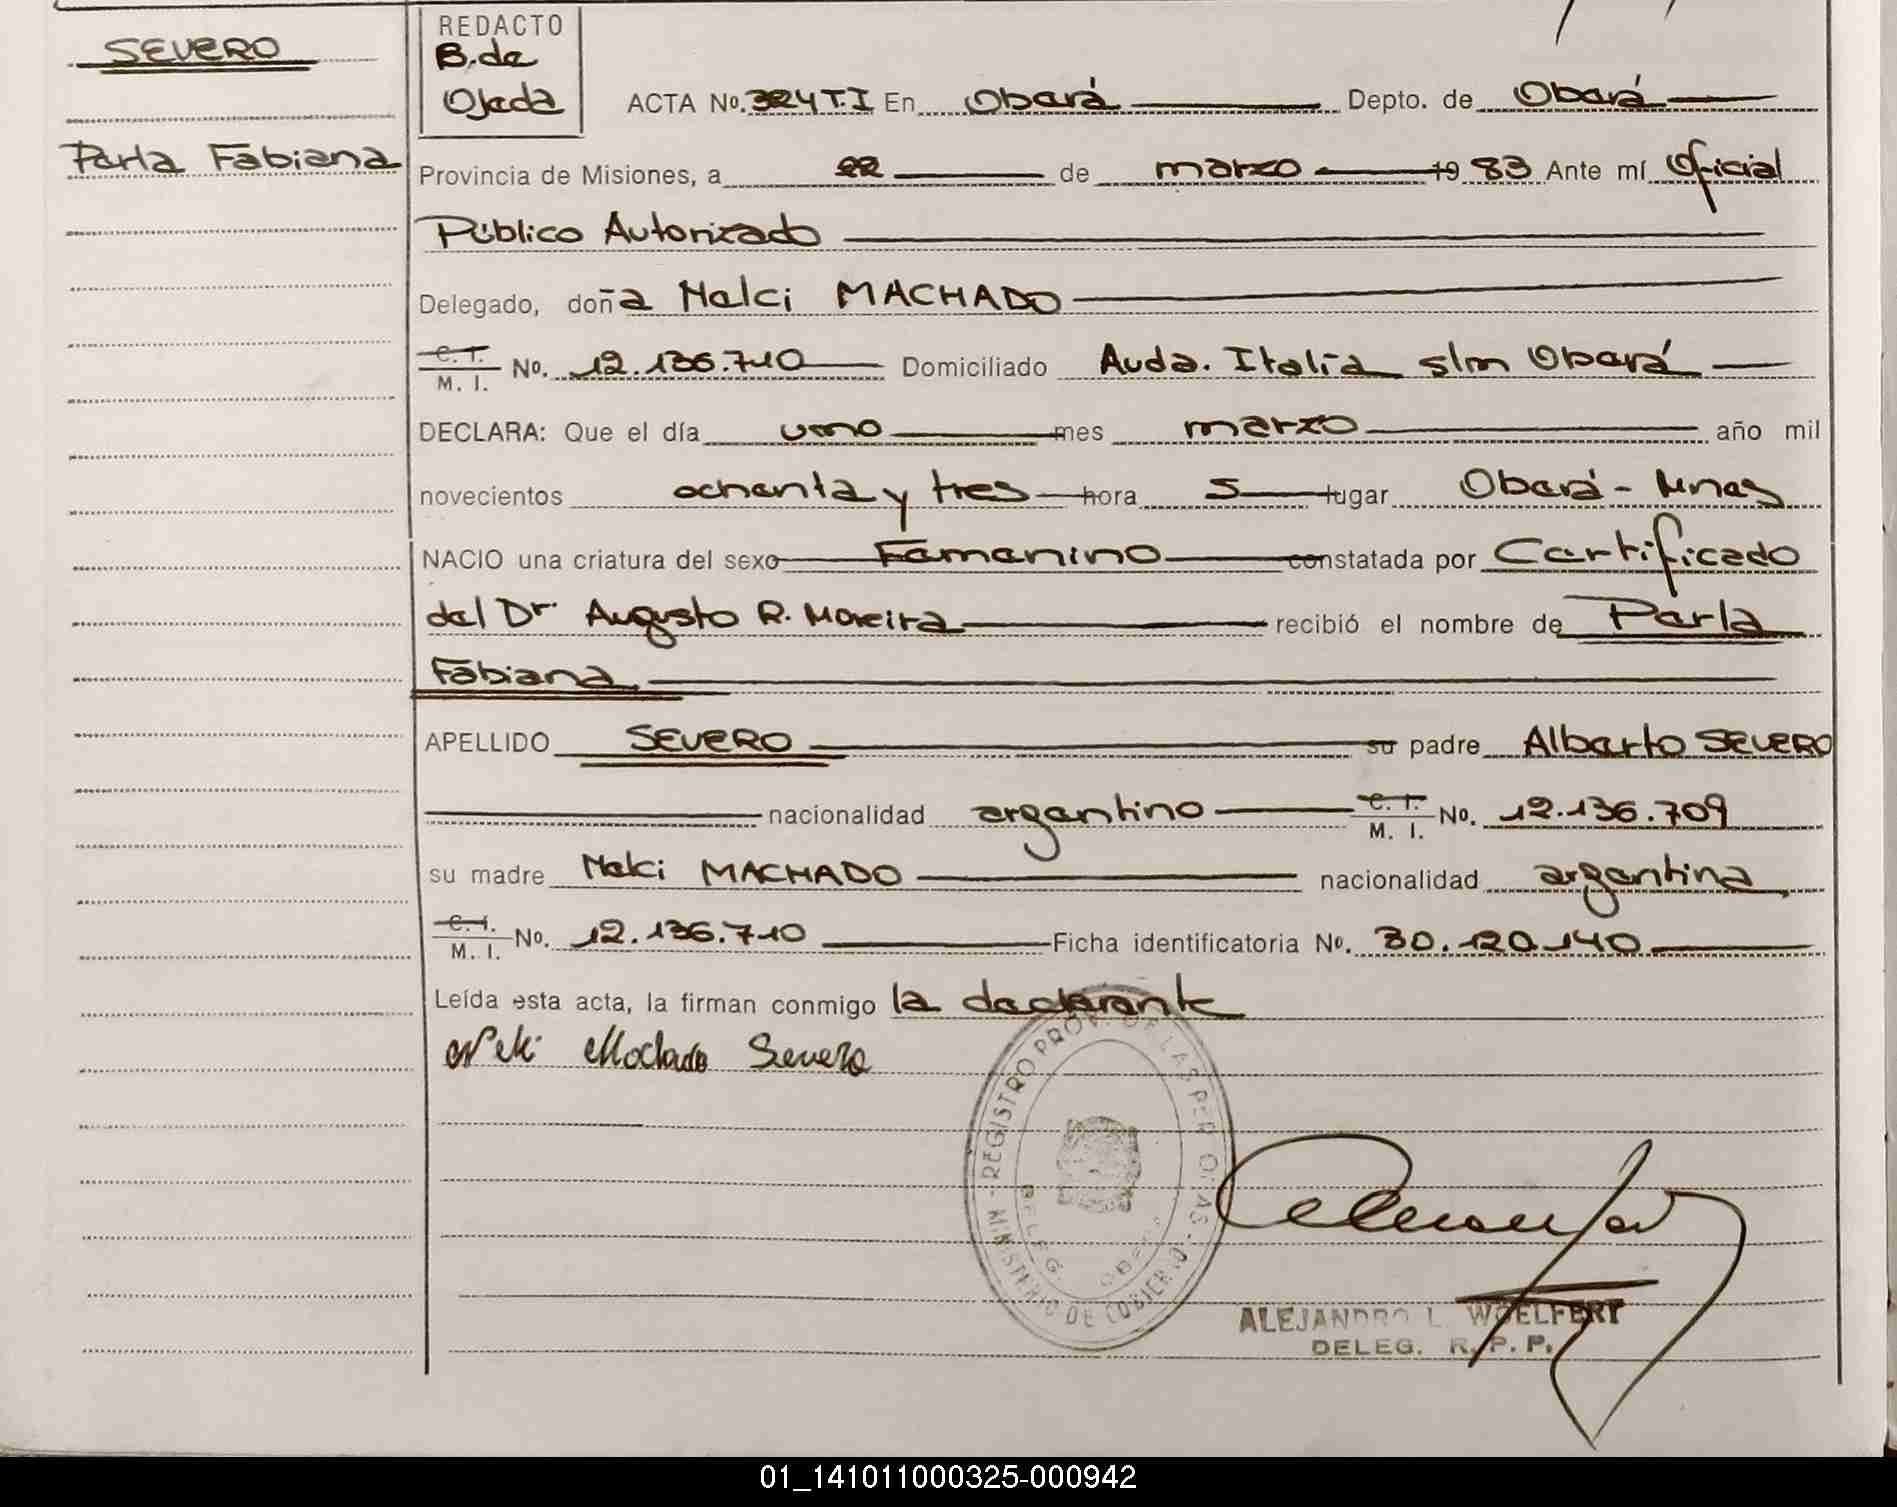 SEVERO
Perla Fabiana
REDACTO
B. de
Ojeda
ACTA No. 324 T.I En Oberá Depto. de Oberá
Provincia de Misiones, a 22 de marzo 1983 Ante mí Oficial
Público Autorizado
Delegado, doña Nelci MACHADO
C. I. M. I. No. 12.136.710 Domiciliado Avda. Italia s/n Oberá
DECLARA: Que el día uno mes marzo año mil
novecientos ochenta y tres hora 5 lugar Oberá - Mnes
NACIO una criatura del sexo Femenino constatada por Certificado
del Dr. Augusto R. Moreira recibió el nombre de Perla
Fabiana
APELLIDO SEVERO su padre Alberto SEVERO
nacionalidad argentino C. I. M. I. No. 12.136.709
su madre Nelci MACHADO nacionalidad argentina
C. I. M. I. No. 12.136.710 Ficha identificatoria No. 30.120.140
Leída esta acta, la firman conmigo la declarante
Nelci Machado Severo
REGISTRO PROV. DE LAS PERSONAS - MINISTERIO DE GOBIERNO -
DELEG. OBERÁ
ALEJANDRO L. WOELFERT
DELEG. R. P. P.
01_141011000325-000942